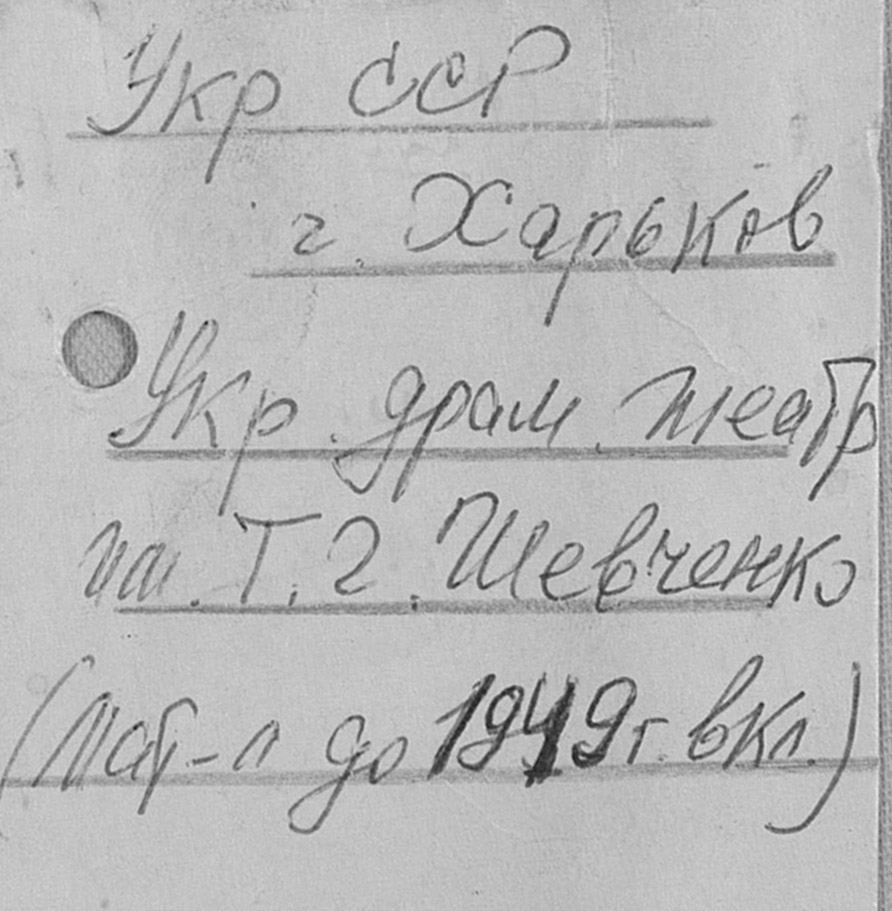 Укр ССР
г. Харьков
Укр. драм. театр
им. Т. Г. Шевченко
(мат-л до 1949 г. вкл.)